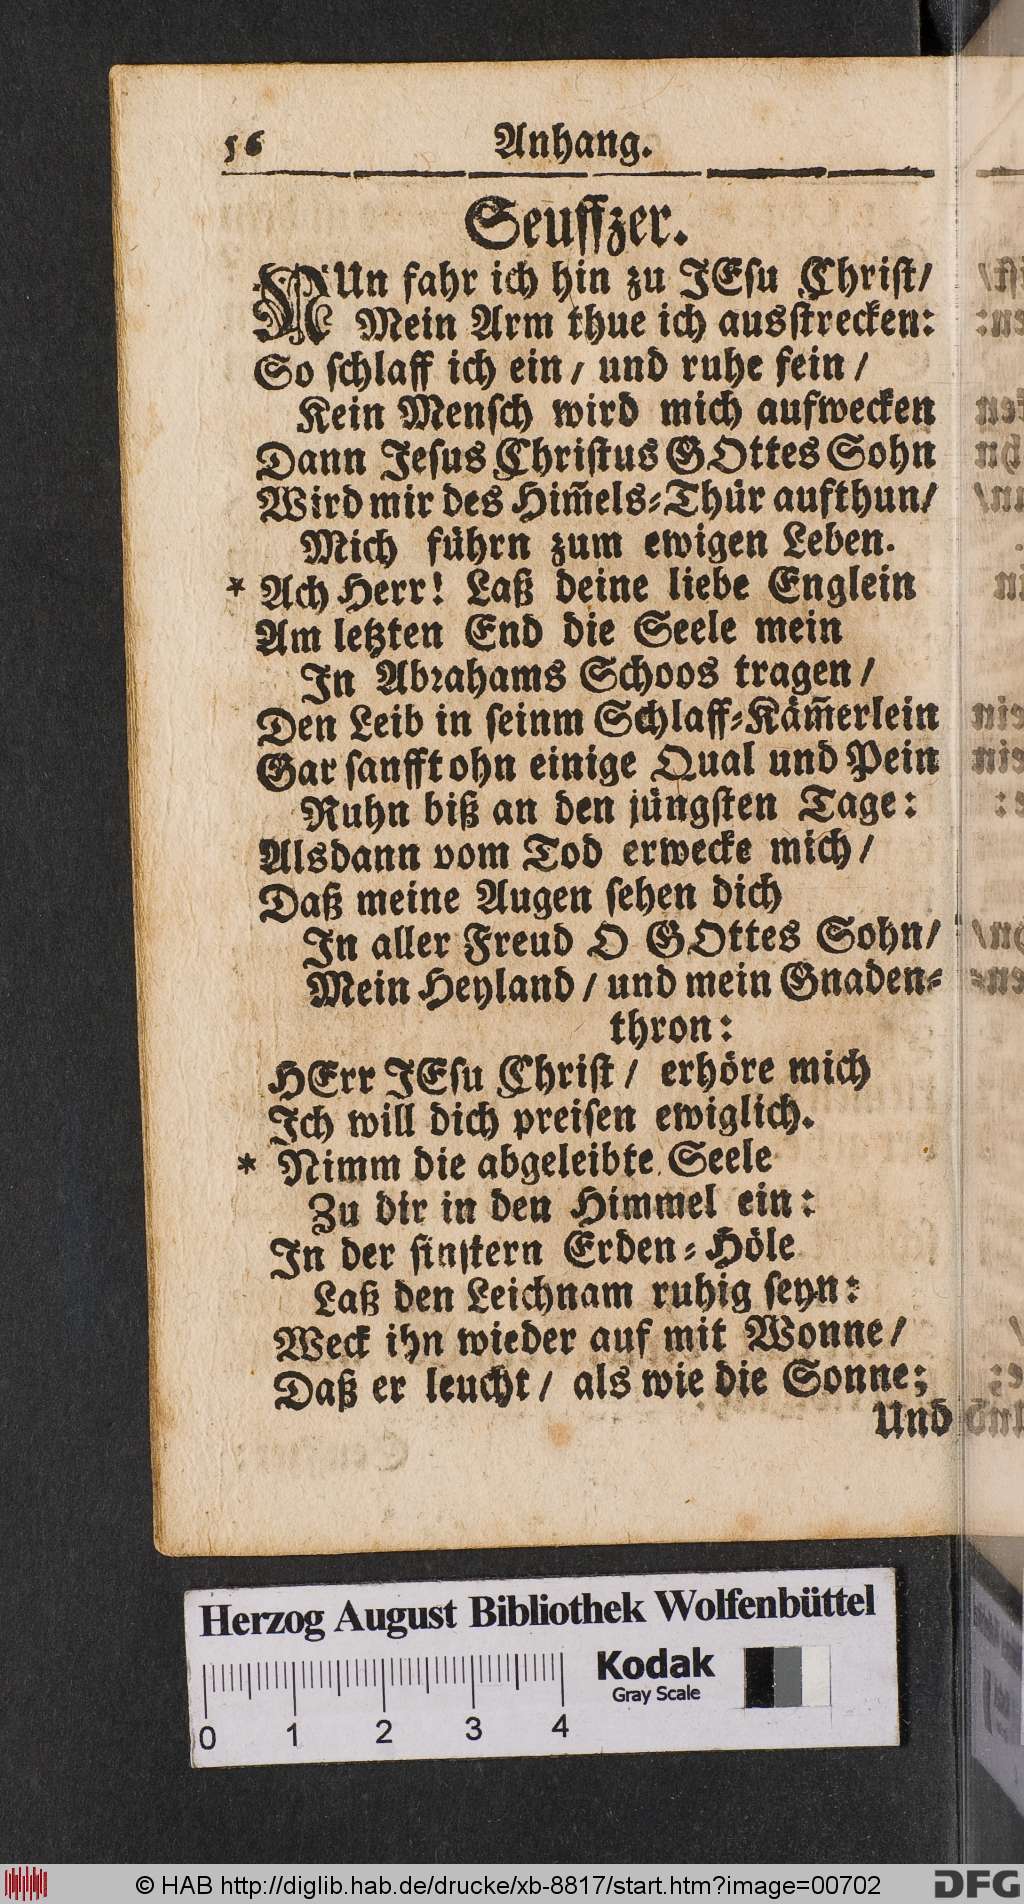 56 Anhang.
Seuffzer.
NUn fahr ich hin zu JEsu Christ/
Mein Arm thue ich ausstrecken:
So schlaff ich ein/ und ruhe fein/
Kein Mensch wird mich aufwecken
Dann Jesus Christus GOttes Sohn
Wird mir des Him̃els-Thür aufthun/
Mich führn zum ewigen Leben.
* Ach Herr! Laß deine liebe Englein
Am letzten End die Seele mein
In Abrahams Schoos tragen/
Den Leib in seinm Schlaff-Käm̃erlein
Gar sanfft ohn einige Qual und Pein
Ruhn biß an den jüngsten Tage:
Alsdann vom Tod erwecke mich/
Daß meine Augen sehen dich
In aller Freud O GOttes Sohn/
Mein Heyland/ und mein Gnaden-
thron:
HErr JEsu Christ/ erhöre mich
Ich will dich preisen ewiglich.
* Nimm die abgeleibte Seele
Zu dir in den Himmel ein:
In der finstern Erden-Höle
Laß den Leichnam ruhig seyn:
Weck ihn wieder auf mit Wonne/
Daß er leucht/ als wie die Sonne;
Und
Herzog August Bibliothek Wolfenbüttel
Kodak
Gray Scale
0 1 2 3 4
© HAB http://diglib.hab.de/drucke/xb-8817/start.htm?image=00702
DFG